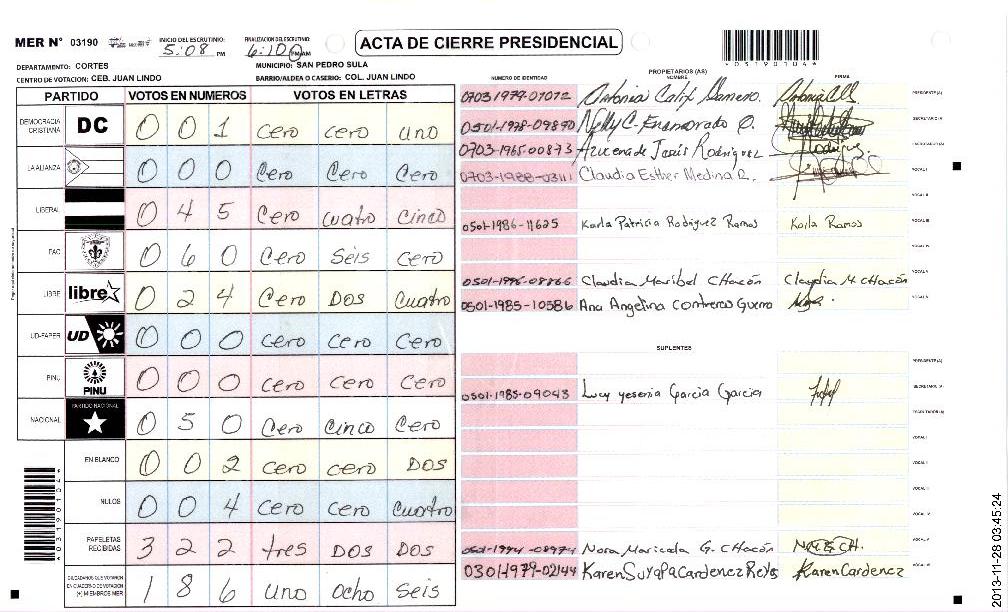 MER N° 03190 INICIO DEL ESCRUTINIO: 5:08 PM FINALIZACION DEL ESCRUTINIO:
ACTA DE CIERRE PRESIDENCIAL
DEPARTAMENTO: CORTES MUNICIPIO: SAN PEDRO SULA
CENTRO DE VOTACION: CEB. JUAN LINDO BARRIO/ALDEA O CASERIO: COL. JUAN LINDO
PARTIDO VOTOS EN NUMEROS VOTOS EN LETRAS
DEMOCRACIA CRISTIANA DC 0 0 1 cero cero uno
LA ALIANZA 0 0 0 Cero Cero Cero
LIBERAL 0 4 5 Cero cuatro cinco
PAC 0 6 0 Cero seis cero
LIBRE libre 0 2 4 Cero DOS Cuatro
UD-FAPER UD 0 0 0 Cero Cero Cero
PINU PINU 0 0 0 Cero Cero Cero
NACIONAL PARTIDO NACIONAL 0 5 0 Cero Cinco Cero
EN BLANCO 0 0 2 cero cero DOS
NULOS 0 0 4 cero cero cuatro
PAPELETAS RECIBIDAS 3 2 2 tres DOS DOS
CIUDADANOS QUE VOTARON EN CUADERNO DE VOTACION (+) MIEMBROS MER 1 8 6 uno ocho seis
NUMERO DE IDENTIDAD PROPIETARIOS (AS) NOMBRE FIRMA
0703 1979-01072 Antonia Calix PRESIDENTE (A)
0501-1978-09890 Nelly C. Enamorado O. SECRETARIO (A)
0703-1965-00873 Azucena de Jesús Rodriguez ESCRUTADOR (A)
0703-1988-03111 Claudia Esther Medina R. VOCAL I
VOCAL II
0501-1986-11625 Karla Patricia Rodriguez Ramos Karla Ramos VOCAL III
VOCAL IV
Claudia Maribel CHacón Claudia M. CHacón VOCAL V
0501-1985-10586 Ana Angelina Contreras Guerro
SUPLENTES
PRESIDENTE (A)
0501-1985-09043 Lucy yesenia Garcia Garcia SECRETARIO (A)
ESCRUTADOR (A)
VOCAL I
VOCAL II
VOCAL III
VOCAL IV
Nora Maricela G. CHacón VOCAL V
0301-1979-02144 Karen Suyapa Cardenez Reyes Karen Cardenez
*031901044*
2013-11-28 03:45:24